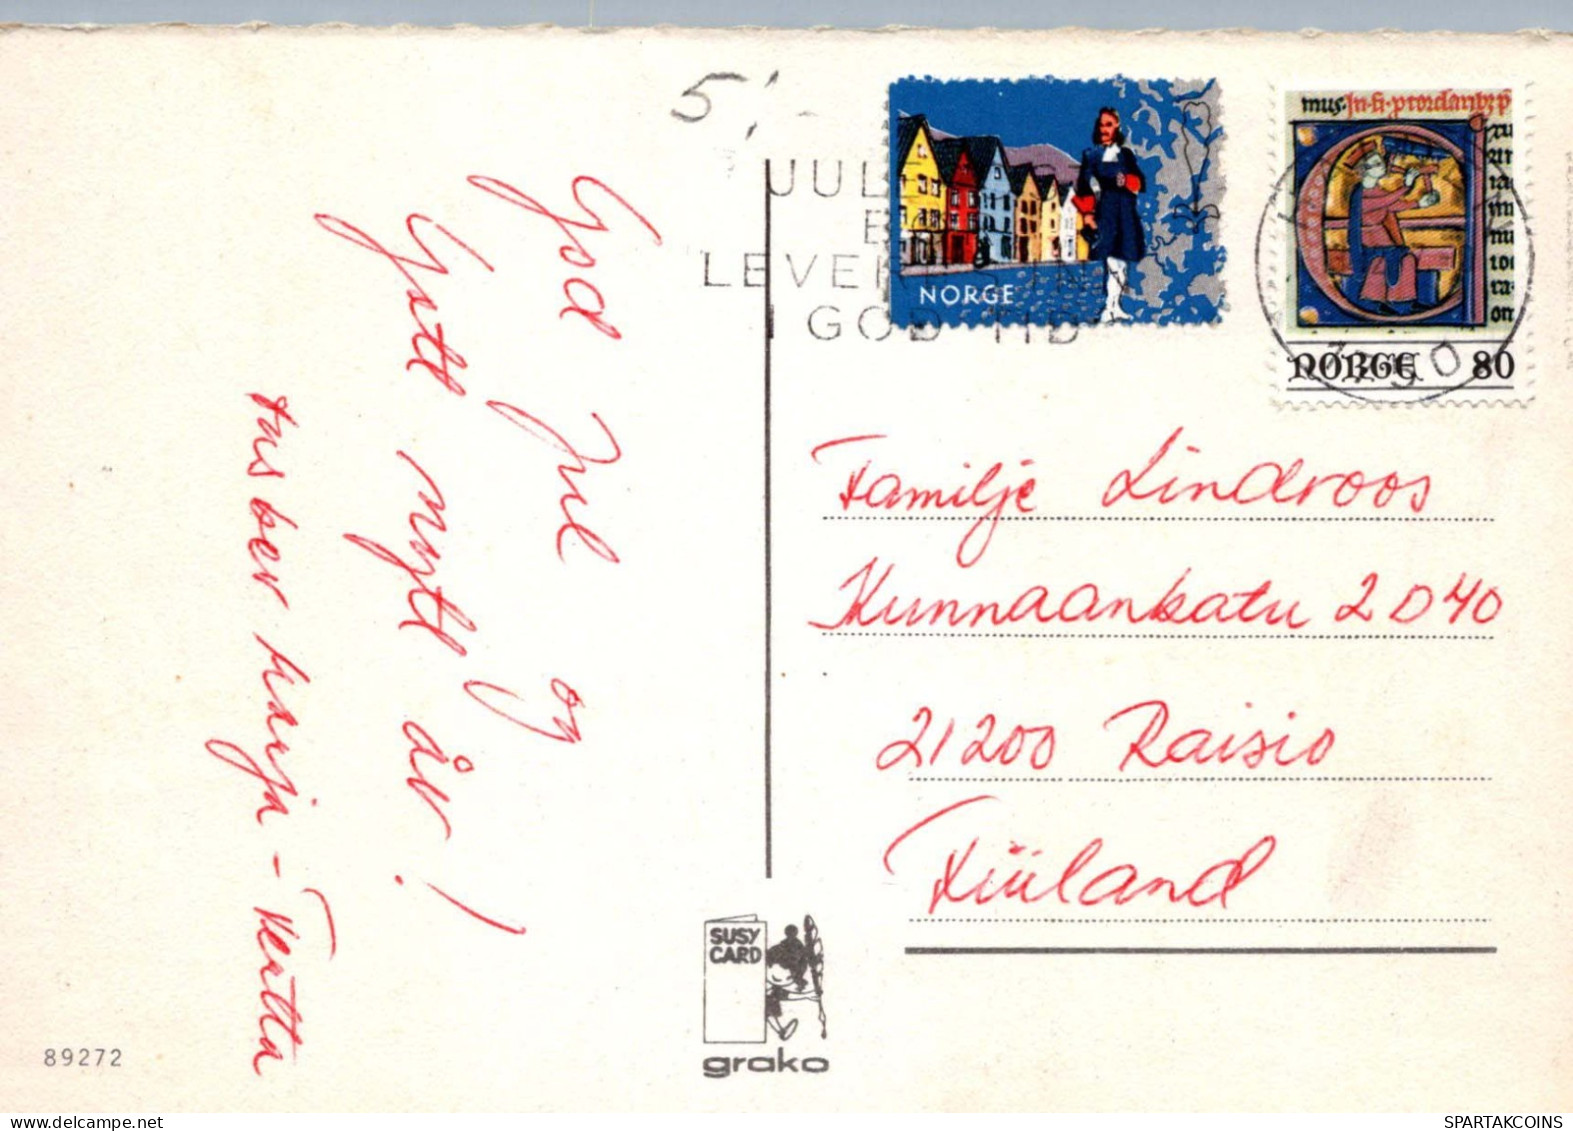 5,-
God Jul og
Gott nytt år!
Marja - Terttu
JUL
LEVE
I GOD TID
NORGE
NORGE 80
Familje Lindroos
Kunnaankatu 2 D 40
21200 Raisio
Finland
SUSY
CARD
grako
89272
www.delcampe.net
SPARTAKCOINS